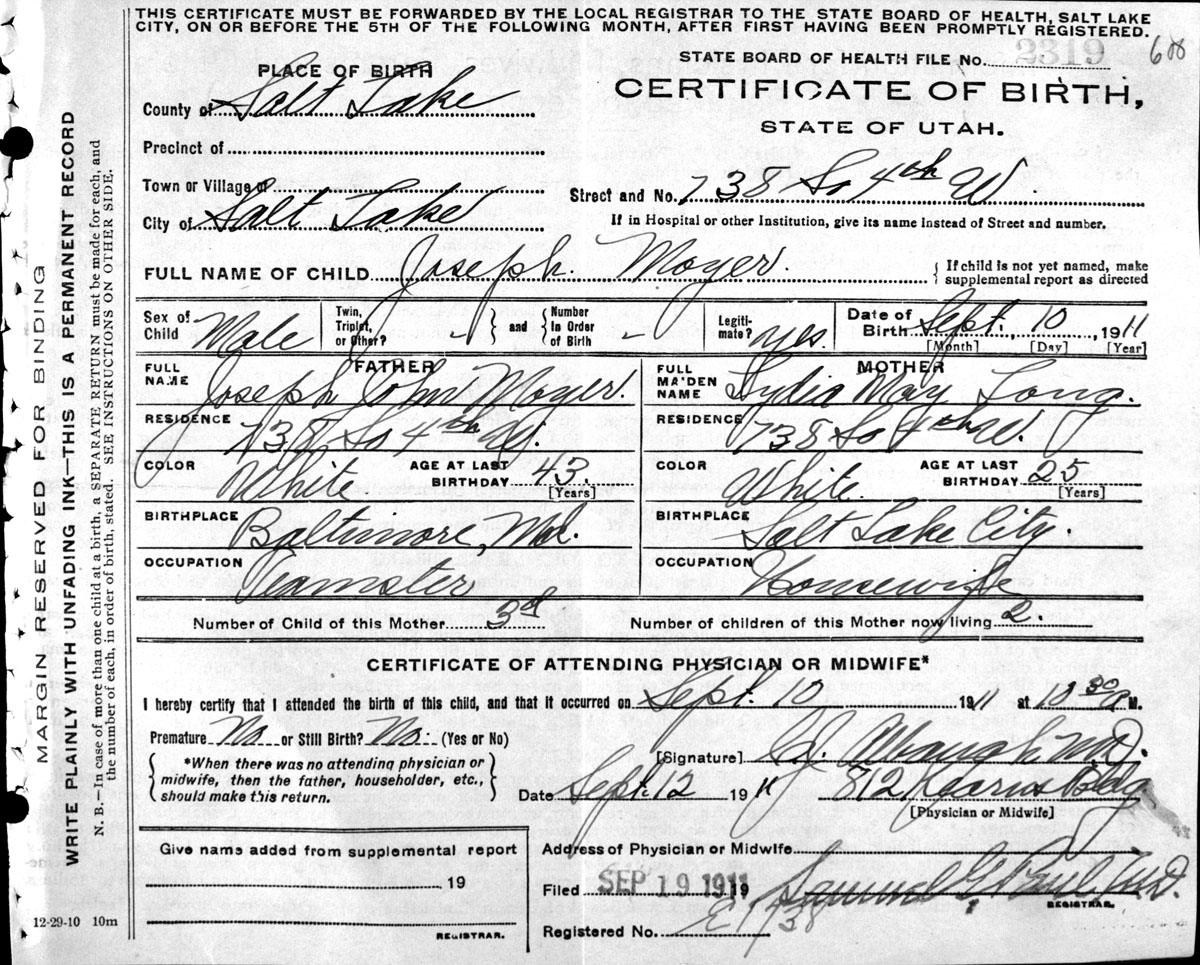 THIS CERTIFICATE MUST BE FORWARDED BY THE LOCAL REGISTRAR TO THE STATE BOARD OF HEALTH, SALT LAKE
CITY, ON OR BEFORE THE 5TH OF THE FOLLOWING MONTH, AFTER FIRST HAVING BEEN PROMPTLY REGISTERED.
STATE BOARD OF HEALTH FILE NO. 2319
PLACE OF BIRTH
CERTIFICATE OF BIRTH,
STATE OF UTAH.
County of Salt Lake
Precinct of
Town or Village of
Street and No. 738 So 4th W.
City of Salt Lake
If in Hospital or other Institution, give its name instead of Street and number.
FULL NAME OF CHILD Joseph Moyer.
If child is not yet named, make
supplemental report as directed
Sex of
Child Male
Twin,
Triplet,
or Other? -
and
Number
In Order
of Birth -
Legiti-
mate? yes.
Date of
Birth Sept. 10, 1911
[Month] [Day] [Year]
FATHER
FULL
NAME Joseph John Moyer.
MOTHER
FULL
MAIDEN
NAME Lydia May Long.
RESIDENCE 738 So 4th W.
RESIDENCE 738 So 4th W.
COLOR White
AGE AT LAST
BIRTHDAY 43.
[Years]
COLOR White.
AGE AT LAST
BIRTHDAY 25
[Years]
BIRTHPLACE Baltimore, Md.
BIRTHPLACE Salt Lake City.
OCCUPATION Teamster
OCCUPATION Housewife
Number of Child of this Mother 3d
Number of children of this Mother now living 2.
CERTIFICATE OF ATTENDING PHYSICIAN OR MIDWIFE*
I hereby certify that I attended the birth of this child, and that it occurred on Sept. 10 1911 at M.
Premature No or Still Birth? No. (Yes or No)
*When there was no attending physician or
midwife, then the father, householder, etc.,
should make this return.
[Signature] M.D.
Date Sept. 12 1911 812 Kearns Bldg
[Physician or Midwife]
Give name added from supplemental report
19
REGISTRAR.
Address of Physician or Midwife
Filed SEP 19 1911 19 Samuel G. Paul M.D.
REGISTRAR.
Registered No. E1738
12-29-10 10m
MARGIN RESERVED FOR BINDING
WRITE PLAINLY WITH UNFADING INK—THIS IS A PERMANENT RECORD
N. B.—In case of more than one child at a birth, a SEPARATE RETURN must be made for each, and
the number of each, in order of birth, stated. SEE INSTRUCTIONS ON OTHER SIDE.